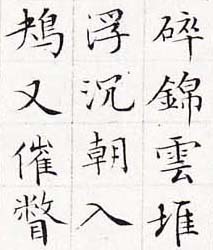 碎錦雲堆
浮沉朝入
鴂又催瞥